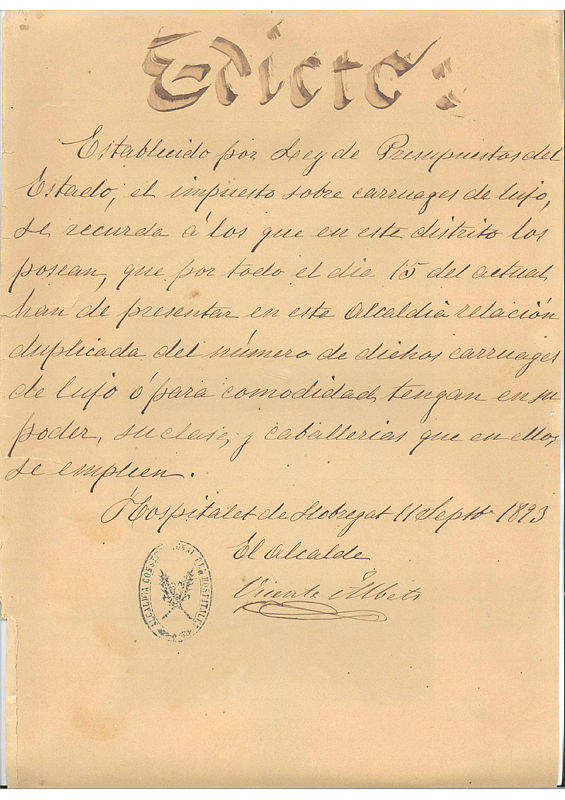 Edicto:
Establecido por Ley de Presupuestos del
Estado, el impuesto sobre carruages de lujo,
se recuerda á los que en este distrito los
posean, que por todo el dia 15 del actual,
han de presentar en esta Alcaldia relación
duplicada del número de dichos carruages
de lujo ó para comodidad, tengan en su
poder, su clase, y caballerias que en ellos
se empleen.
Hospitalet de Llobregat 11 Sepbre 1893
El Alcalde
Vicente
ALCALDIA CONSTITUCIONAL DE HOSPITALET